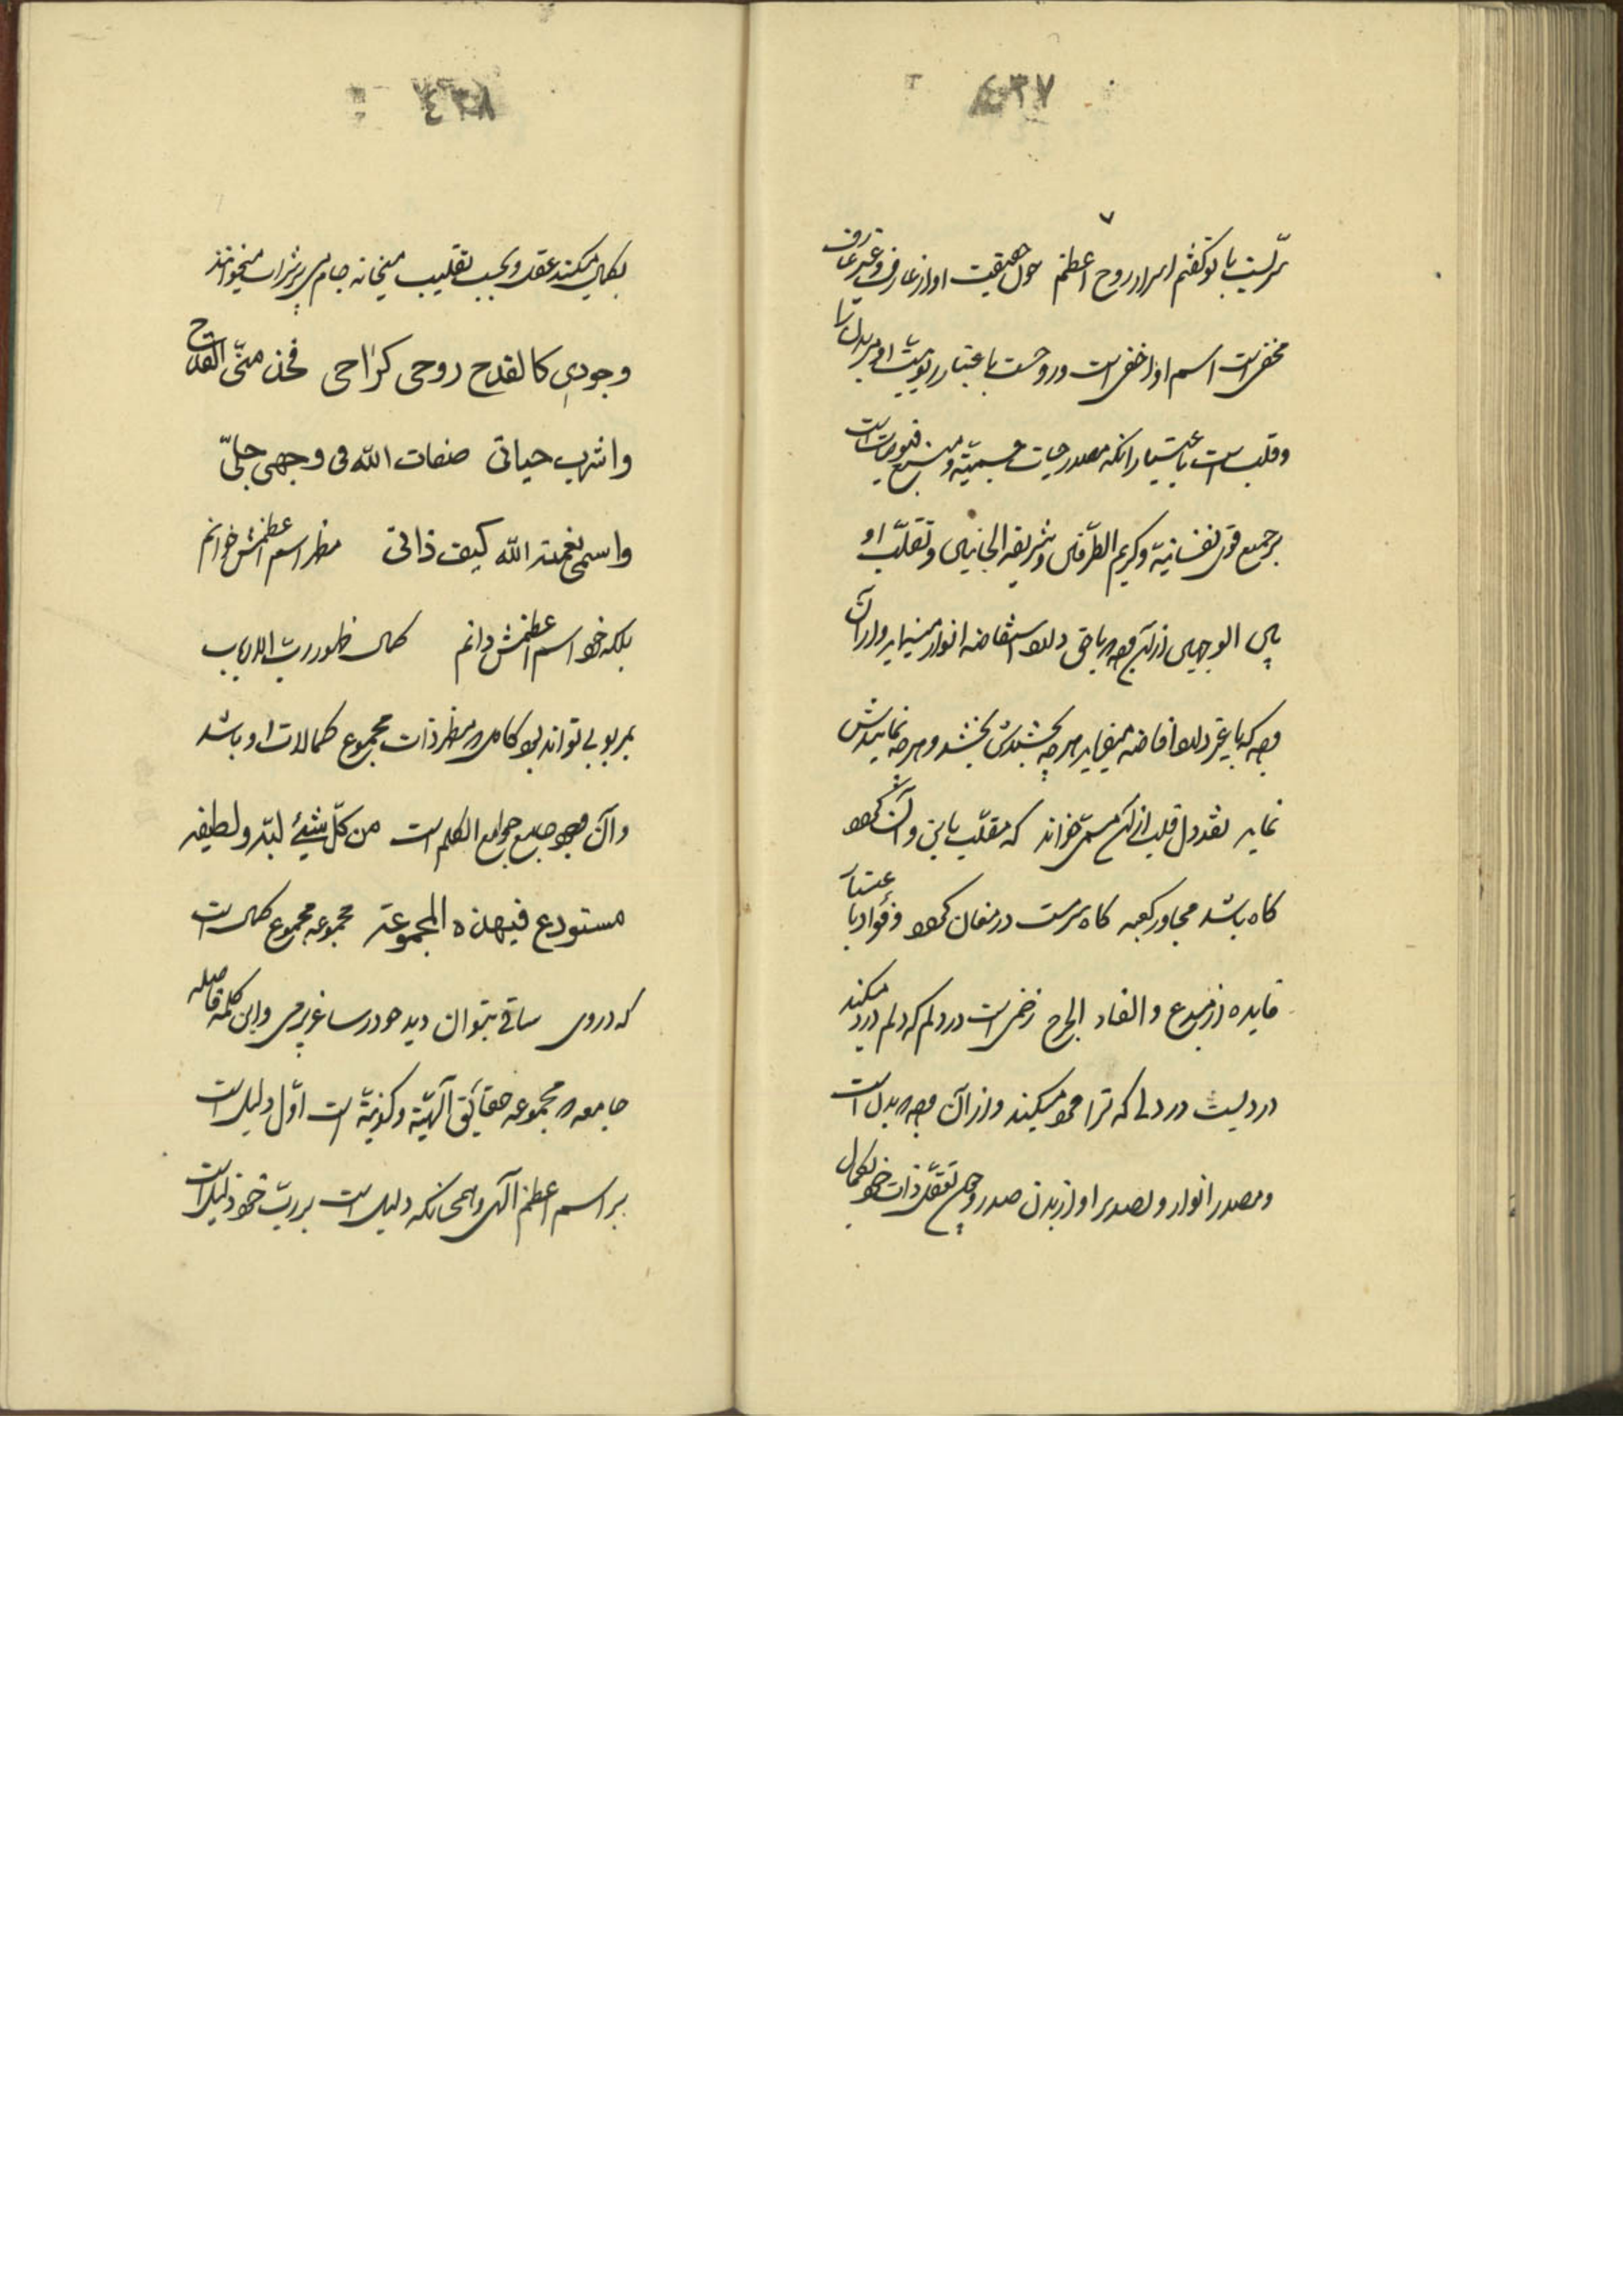 ٤٣٧
سرّیست با تو گفتم اسرار روح اعظم چون حقیقت او از عارف و غیر عارف
مخفی است اسم او اخفی است و روحست باعتبار ربوبیت او مر بدن را
و قلب است باعتبار آنکه مصدر حیات جسمیّه و منبع فیوضات است
بر جمیع قوی نفسانیّة و کریم الطّرفین و شریف الجانبین و تقلّب او
بین الوجهین از آن وجه باقی دارد استفاضه انوار مینماید و از آن
وجه که با غیر دارد افاضه میفرماید هرچه بخشیدش بخشد و هرچه نمایدش
نماید نقد دل قلب از آن مسمی خواند که مقلّب باین و آن کردد
کاه باشد مجاور کعبه کاه سرمست در مغان کردد و فؤاد باعتبار
فایده از مبدع و الفاد الجرح زخمی است در دلم که دلم درد میکند
دردیست در دلی که ترا محو میکند و از آن وجه بدل است
و مصدر انوار و تصدیر او از بدن صدر و چون تعقّل ذات خود بکمال
٤٣٨
بکمال میکند عقل و بحسب تقلیب میخانه جام می پر شراب میخوانند
وجودی کالقدح روحی کراحی فخذ منّی القدح
واشرب حیاتی صفات الله فی وجهی جلیّ
واسمع نعمة الله کیف ذاتی مظهر اسم اعظمش خوانم
بلکه خود اسم اعظمش دانم کمال ظهور ربّ الارباب
بمربوبی تواند بود کامل و مظهر ذات مجموع کمالات او باشد
وآن وجود جامع جوامع الکلم است من کلّ شیئ لبّه و لطیفه
مستودع فی هذه المجموعة مجموعه مجموع کمال است
که در وی ساقی بتوان دید خود در ساغر پر می و این کلمه فاصله
جامعه و مجموعه حقایق الهیّة و کونیّة است اوّل دلیل است
بر اسم اعظم الهی و همچنانکه دلیل است بر ربّ خود دلیل است